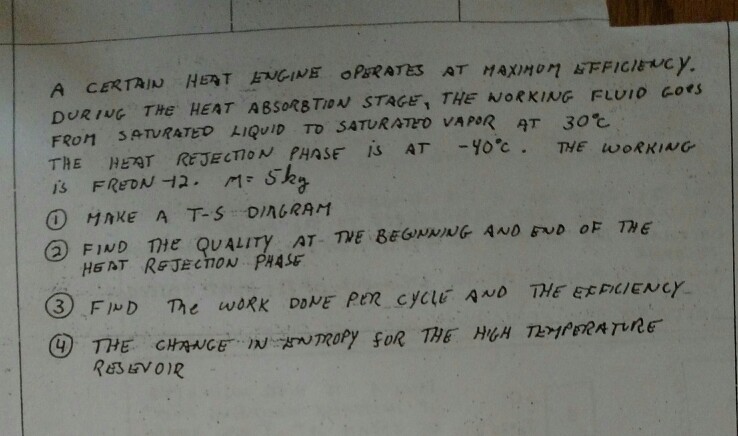 A CERTAIN HEAT ENGINE OPERATES AT MAXIMUM EFFICIENCY.
DURING THE HEAT ABSORBTION STAGE, THE WORKING FLUID GOES
FROM SATURATED LIQUID TO SATURATED VAPOR AT 30°C
THE HEAT REJECTION PHASE is AT -40°C. THE WORKING
is FREON -12. M= 5kg
① MAKE A T-S DIAGRAM
② FIND THE QUALITY AT THE BEGINNING AND END OF THE
HEAT REJECTION PHASE
③ FIND The WORK DONE PER CYCLE AND THE EFFICIENCY
④ THE CHANGE IN ENTROPY FOR THE HIGH TEMPERATURE
RESEVOIR